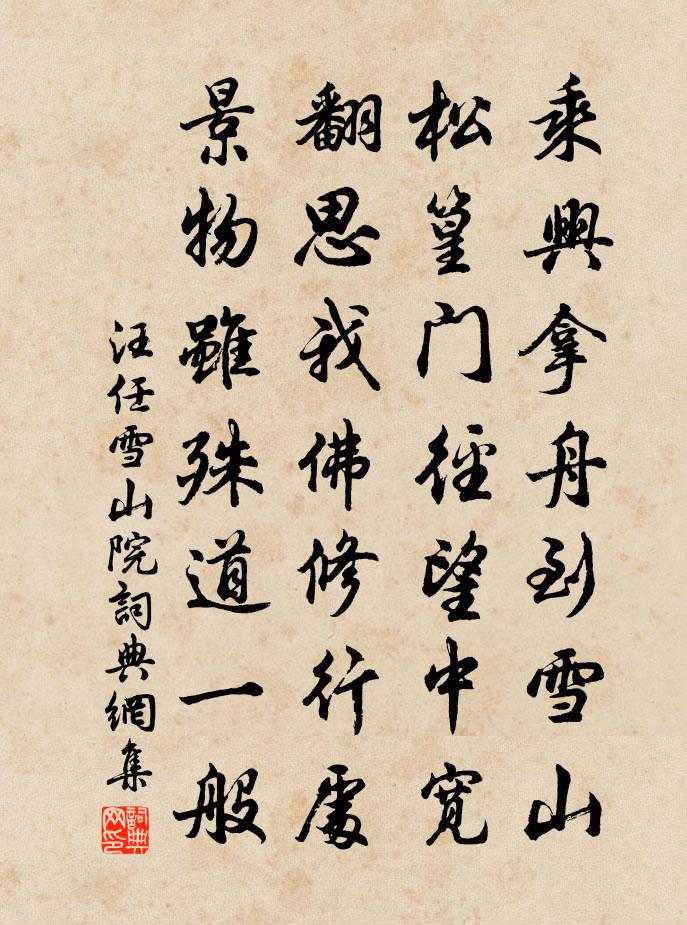 乘興拿舟到雪山
松篁門徑望中寬
翻思我佛修行處
景物雖殊道一般
汪任雪山院詞典網集
詞典网印